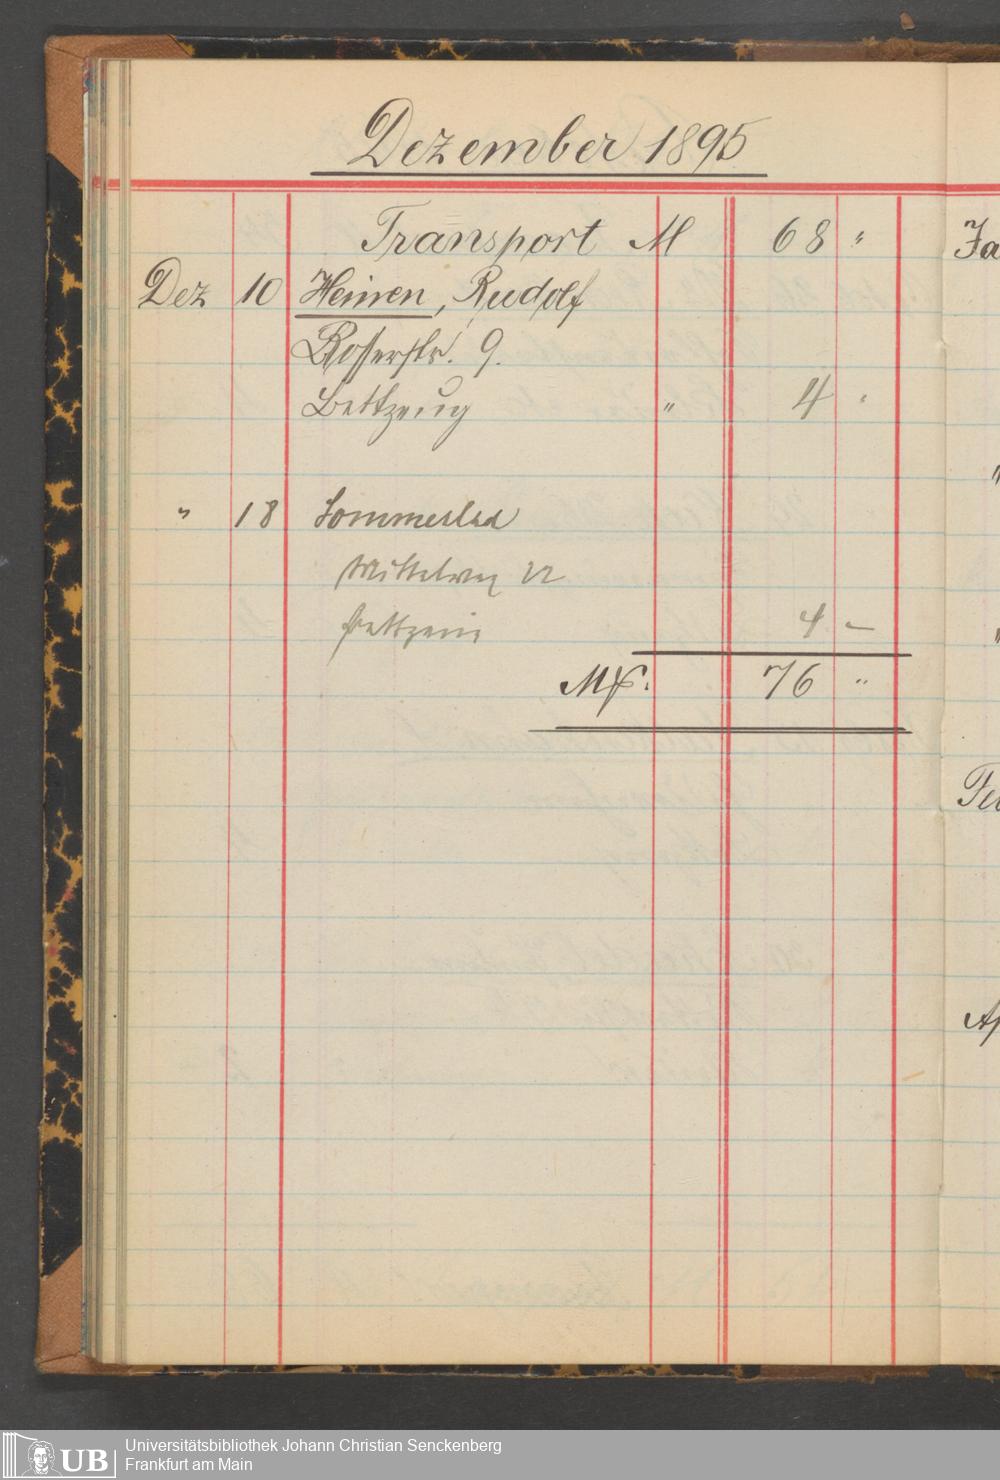 Dezember 1895
Transport M 68 "
Dez 10 Heinen, Rudolf
Rosserstr. 9.
Bettzeug " 4 "
" 18 Sommerlad
Mittelweg 22
4 –
Mk. 76 "
Universitätsbibliothek Johann Christian Senckenberg
Frankfurt am Main
UB